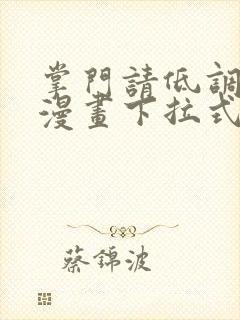 掌門請低調
漫畫下拉式
蔡錦波